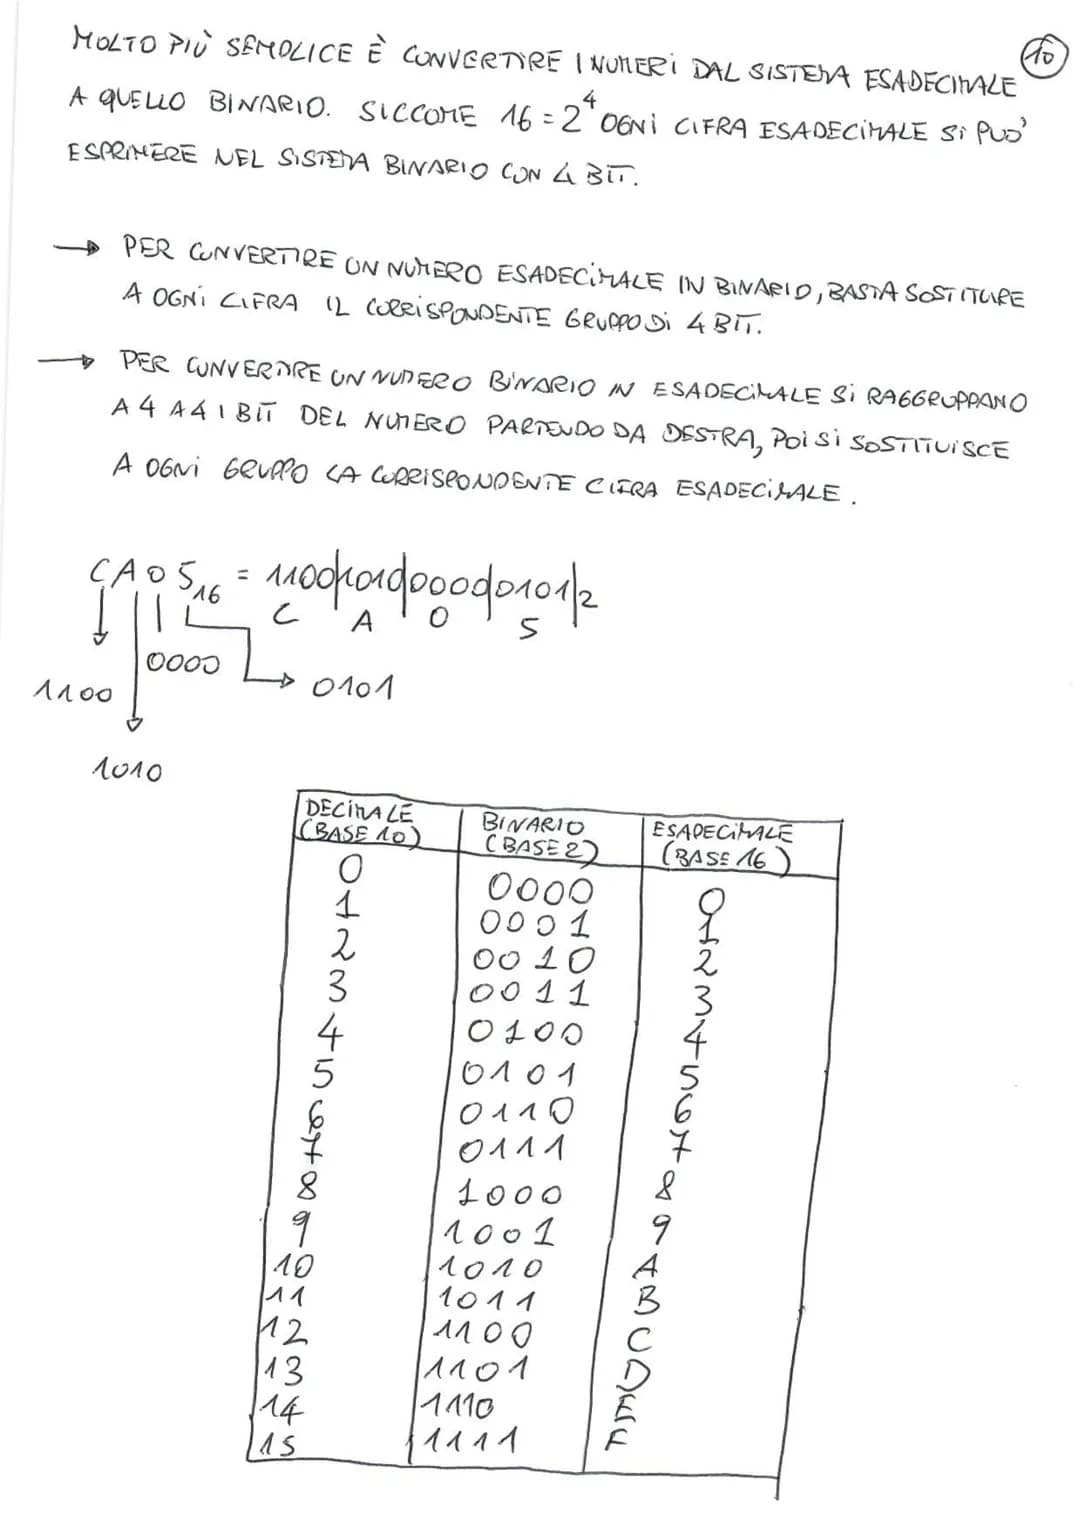 10
MOLTO PIÙ SEMPLICE È CONVERTIRE I NUMERI DAL SISTEMA ESADECIMALE
A QUELLO BINARIO. SICCOME 16 = 2⁴ OGNI CIFRA ESADECIMALE SI PUO'
ESPRIMERE NEL SISTEMA BINARIO CON 4 BIT.
→ PER CONVERTIRE UN NUMERO ESADECIMALE IN BINARIO, BASTA SOSTITUIRE
A OGNI CIFRA IL CORRISPONDENTE GRUPPO DI 4 BIT.
→ PER CONVERTIRE UN NUMERO BINARIO IN ESADECIMALE SI RAGGRUPPANO
A 4 A 4 I BIT DEL NUMERO PARTENDO DA DESTRA, POI SI SOSTITUISCE
A OGNI GRUPPO LA CORRISPONDENTE CIFRA ESADECIMALE.
CA05₁₆ = 1100|1010|0000|0101|₂
C A 0 5
0000
1100
0101
1010
DECIMALE (BASE 10) BINARIO (BASE 2) ESADECIMALE (BASE 16)
0 0000 0
1 0001 1
2 0010 2
3 0011 3
4 0100 4
5 0101 5
6 0110 6
7 0111 7
8 1000 8
9 1001 9
10 1010 A
11 1011 B
12 1100 C
13 1101 D
14 1110 E
15 1111 F